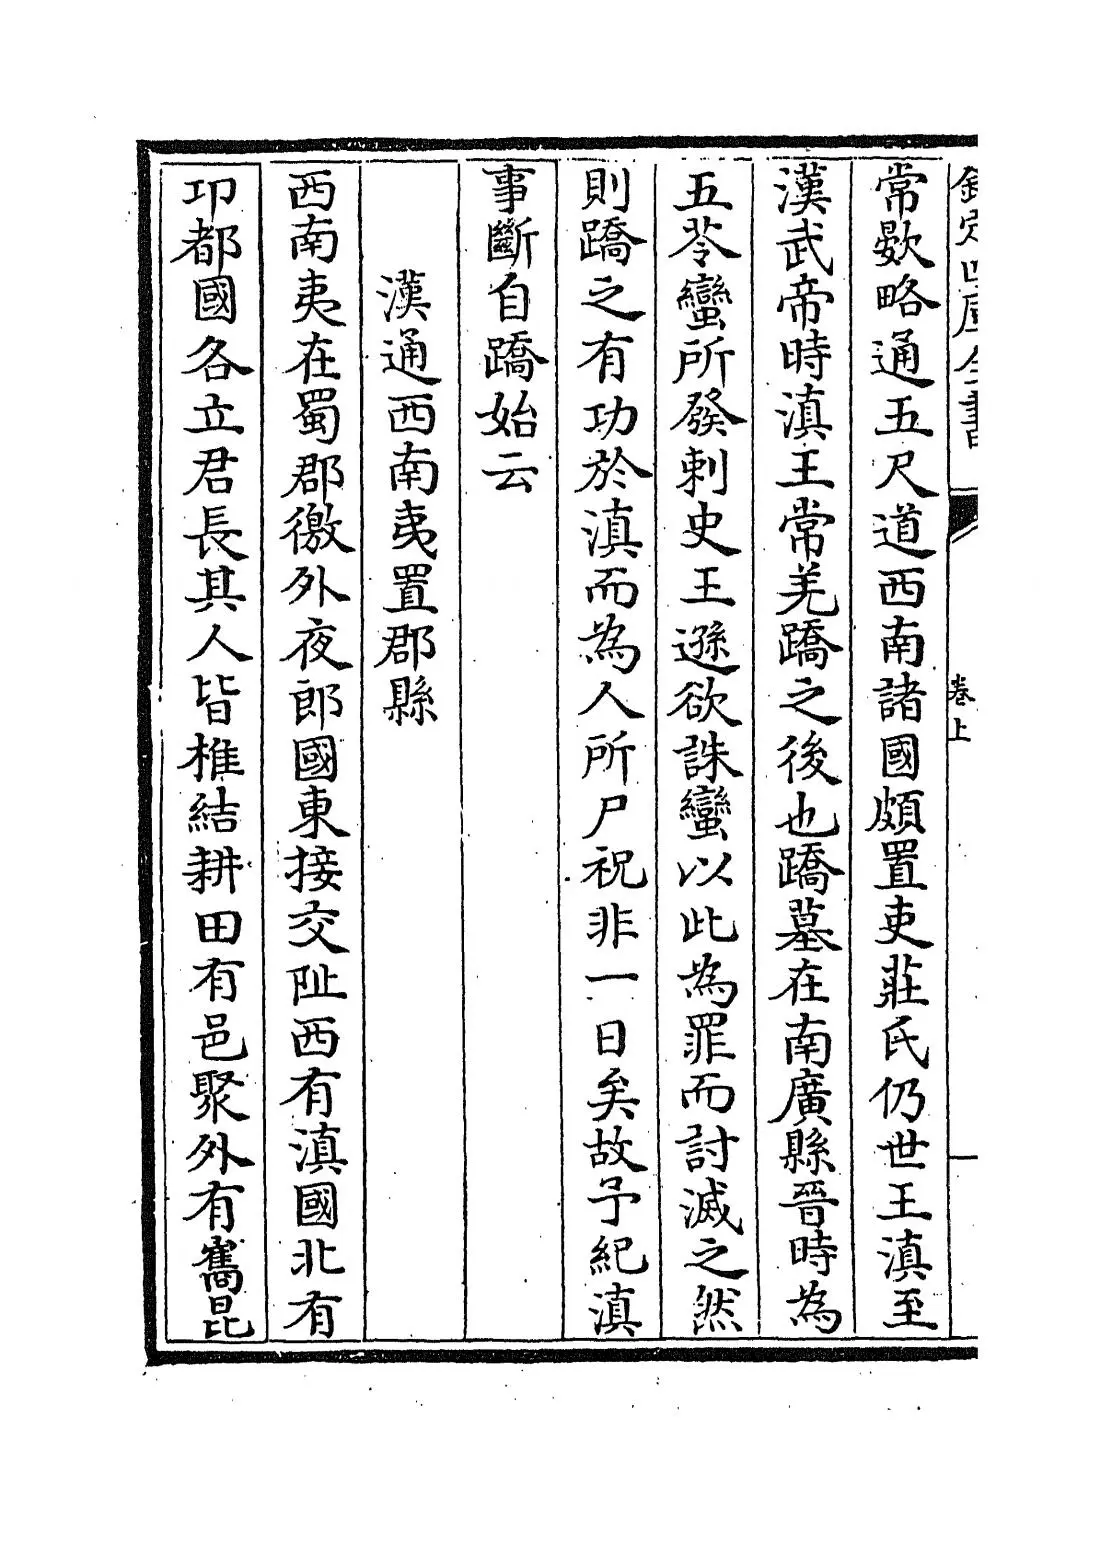 欽定四庫全書
卷上
常歟略通五尺道西南諸國頗置吏莊氏仍世王滇至
漢武帝時滇王常羌蹻之後也蹻墓在南廣縣晉時為
五苓蠻所發刺史王遜欲誅蠻以此為罪而討滅之然
則蹻之有功於滇而為人所尸祝非一日矣故予紀滇
事斷自蹻始云
漢通西南夷置郡縣
西南夷在蜀郡徼外夜郎國東接交阯西有滇國北有
卭都國各立君長其人皆椎結耕田有邑聚外有巂昆